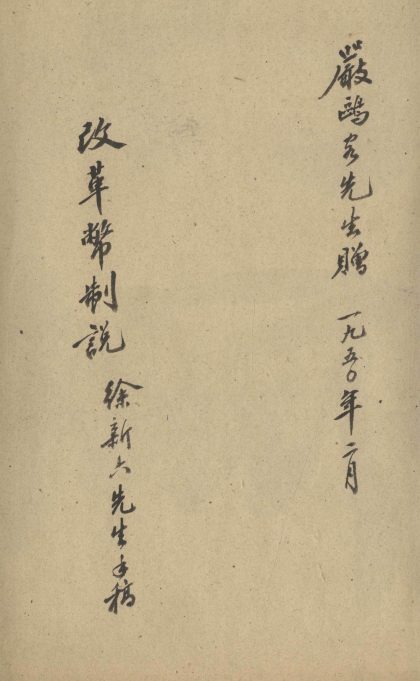 嚴鷗客先生贈 一九五〇年二月
改革幣制說 徐新六先生手稿